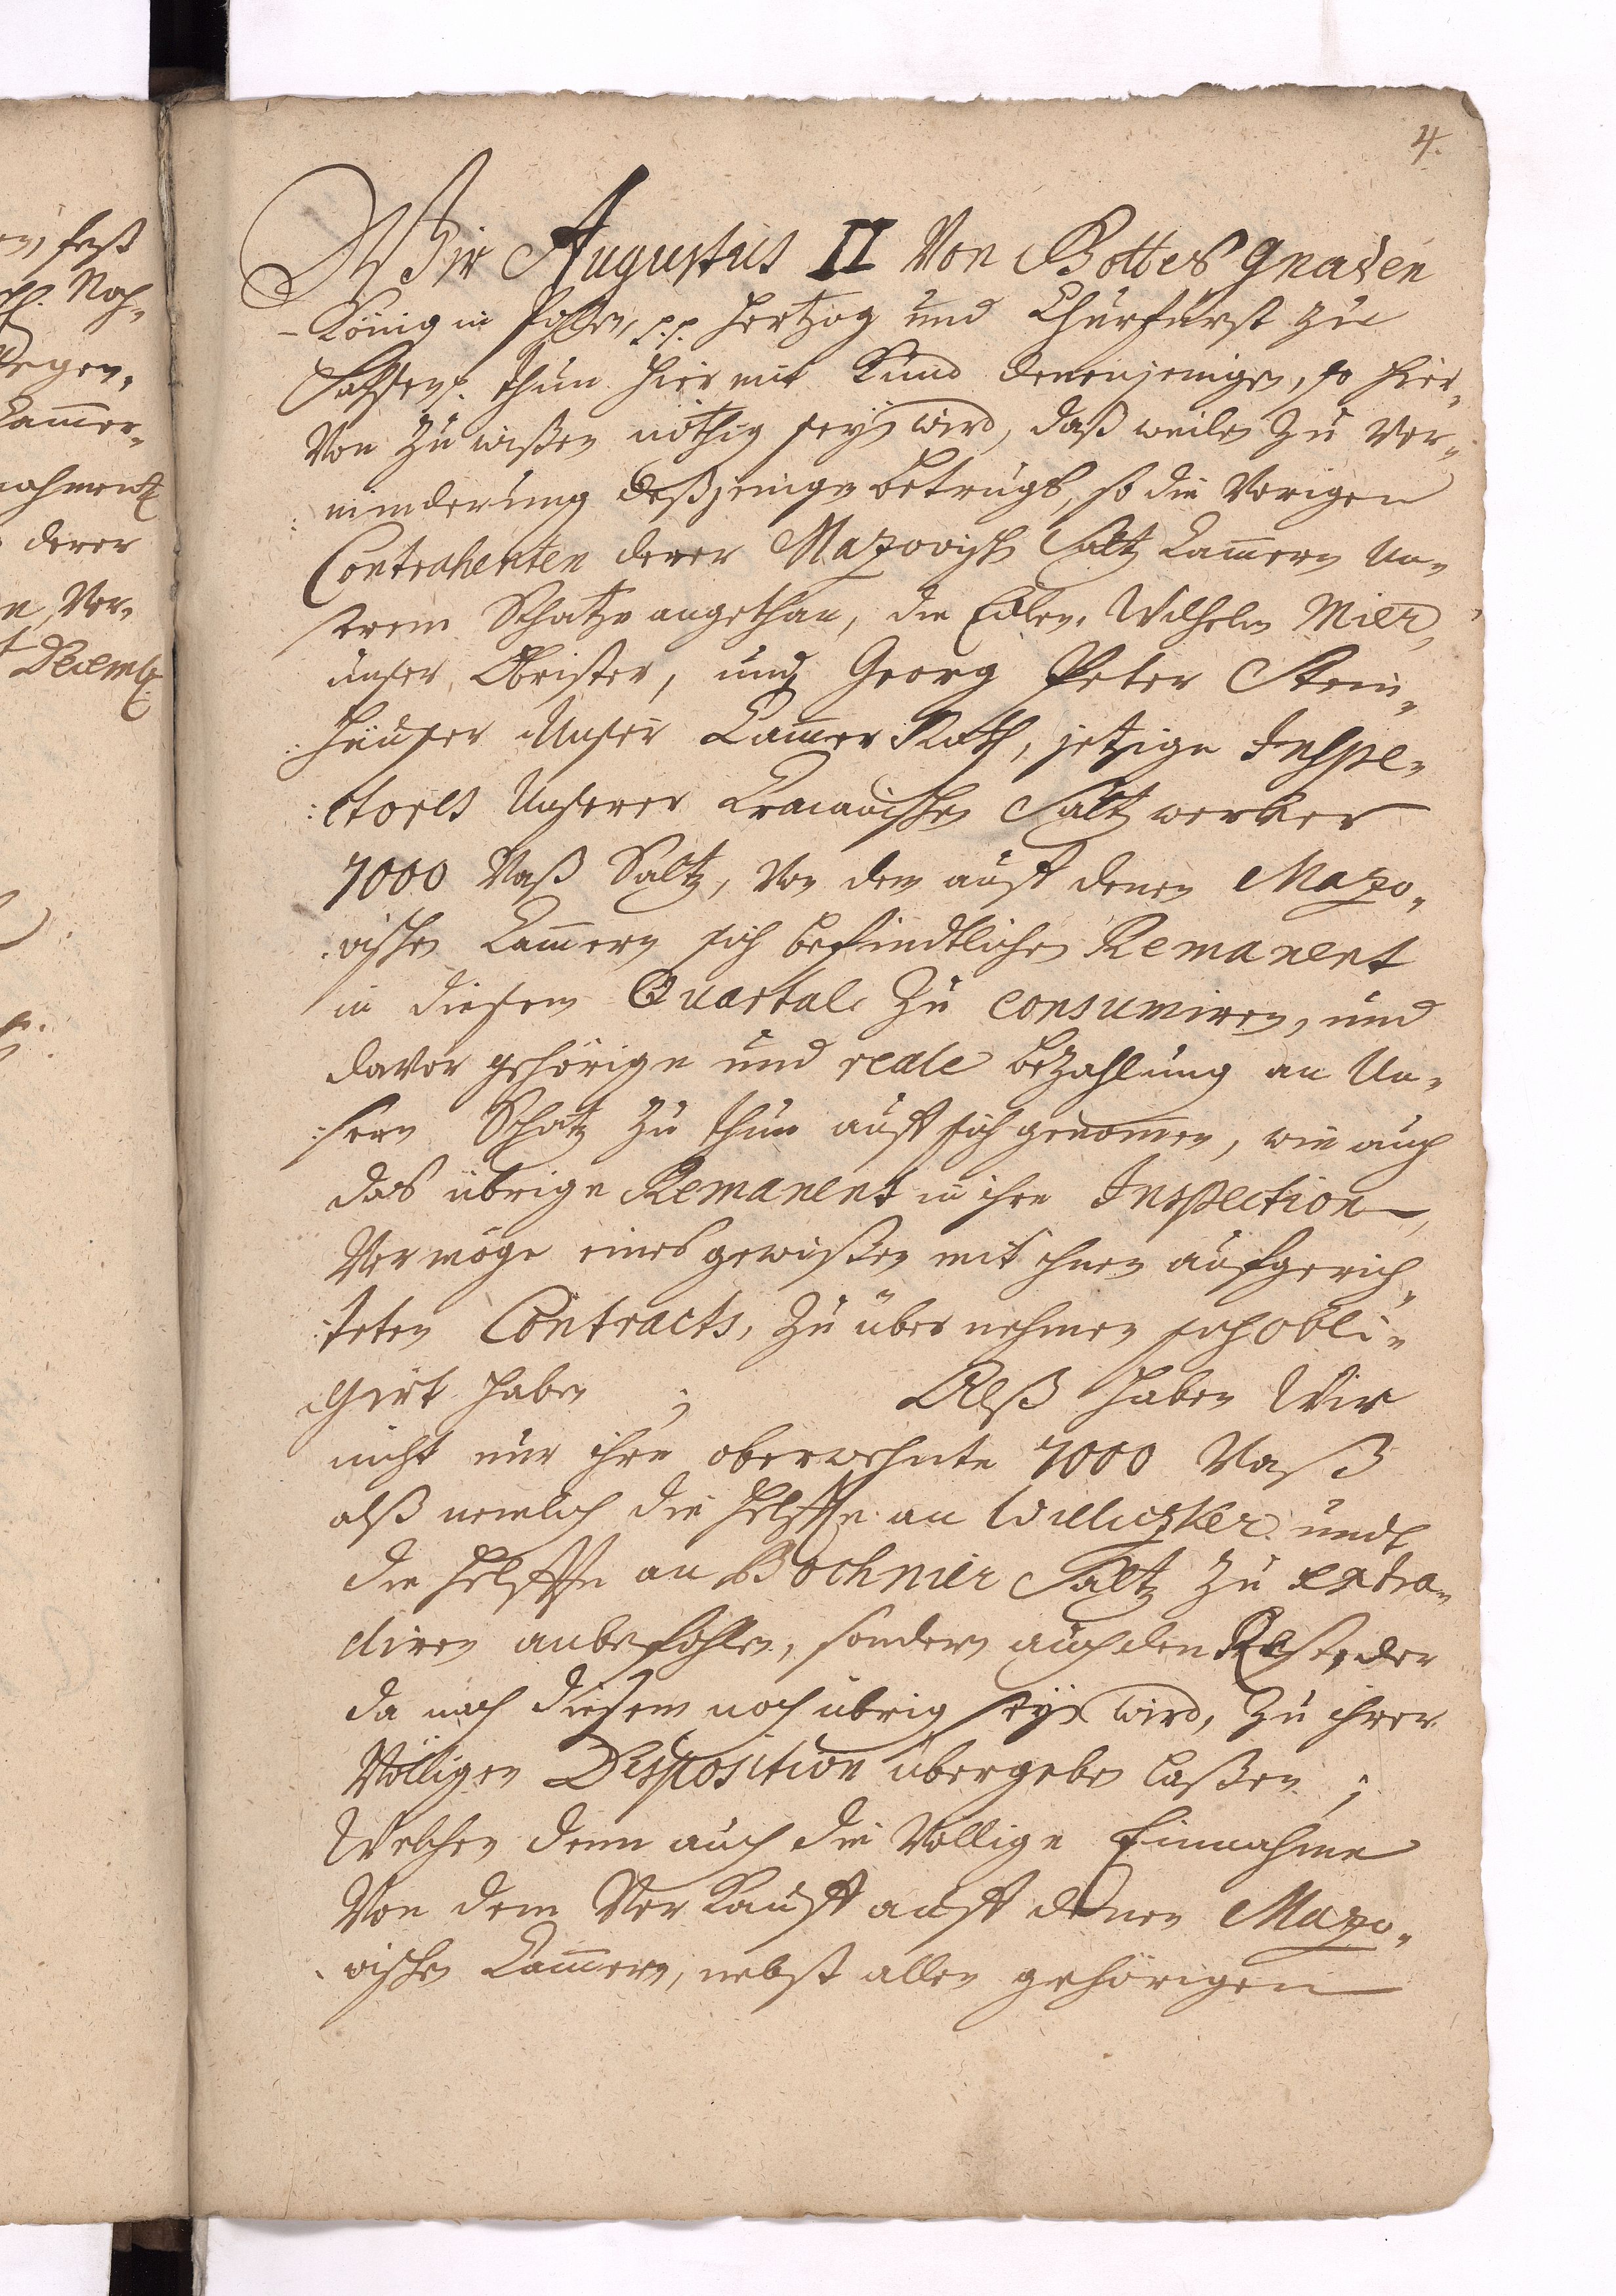 4.
Wir Augustus II Von Gottes Gnaden
König in Pohlen, p.p. Hertzog und Churfürst zu
Sachsen p. thun hiermit Kund denenjenigen, so hier-
Von zu wißen nöthig seyn wird, daß weilen zu Ver-
minderung deßjenigen betrugs, so die Vorigen
Contrahenten derer Mazovischen Saltz Cammern Un-
serem Schatze angethan, die Edlen, Wilhelm Mier,
unser Obrister, und Georg Peter Stein-
häuser Unser Cammer Rath, jetzige Inspe-
ctores Unserer Cracauischen Saltzwercker
7000 Vaß Saltz, von dem auff denen Mazo-
vischen Cammern sich befindtlichen Remanent
in diesem Quartal zu consumiren, und
davor gehörige und reale bezahlung an Un-
sern Schatz zu thun auff sich genomen, wie auch
das übrige Remanent in ihre Inspection,
Vermöge eines gewißen mit ihnen aufgerich-
teten Contracts, zu über nehmen sich obli-
girt haben ; Alß haben Wir
nicht nur ihre oberwehnte 7000 Vaß
alß nemlich die Helffte an Wieliczker undt
die Helffte an Bochnier Saltz zu extra-
diren anbefohlen, sondern auch den Rest, der
da nach diesem noch übrig seyn wird, zu ihrer
Völligen Disposition übergeben laßen ;
Welchen denn auch die Völlige Einnahme
Von dem Verkauff auff denen Mazo-
vischen Cammern, nebst allen gehörigen